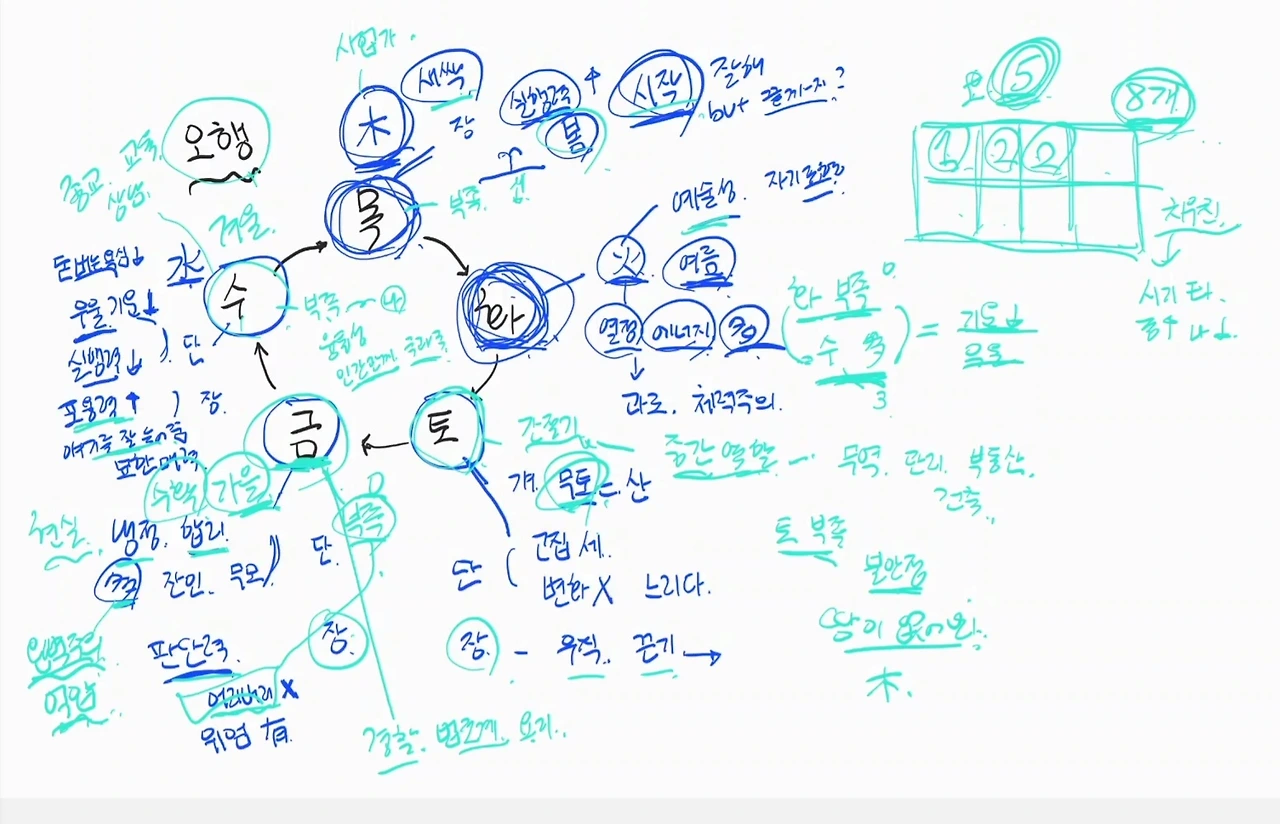 사업가.
오행
木
새싹
장
실행력 ↑
봄
시작
잘해
but 끝까지?
목
부족.
종교 교육.
상담.
겨울.
水
수
돈 버는 욕심↓
우울 기운↓
실행력↓ ) 단
포용력 ↑ ) 장.
이야기를 잘 들어줌
묘한 매력.
부족
융통성
예술성. 자기표현
화
火
여름
열정 에너지 多
과로, 체력주의.
금
토
간절기
무토 = 산
단 ( 고집 세.
변화 X 느리다.
장. - 우직. 끈기 →
중간 역할 - 무역, 관리, 부동산,
건축.
토 부족
불안정
땅이 없어와.
木.
수확 가을
현실. 냉정. 합리.
多 잔인. 단.
부족
완벽주의
억압.
판단력
장.
어리버리 X
위엄 有.
경찰. 법조계. 요리.
오 5
8개
1 2 2
채우진
시기 타.
(화 부족
수 多) = 기운↓
우울
3